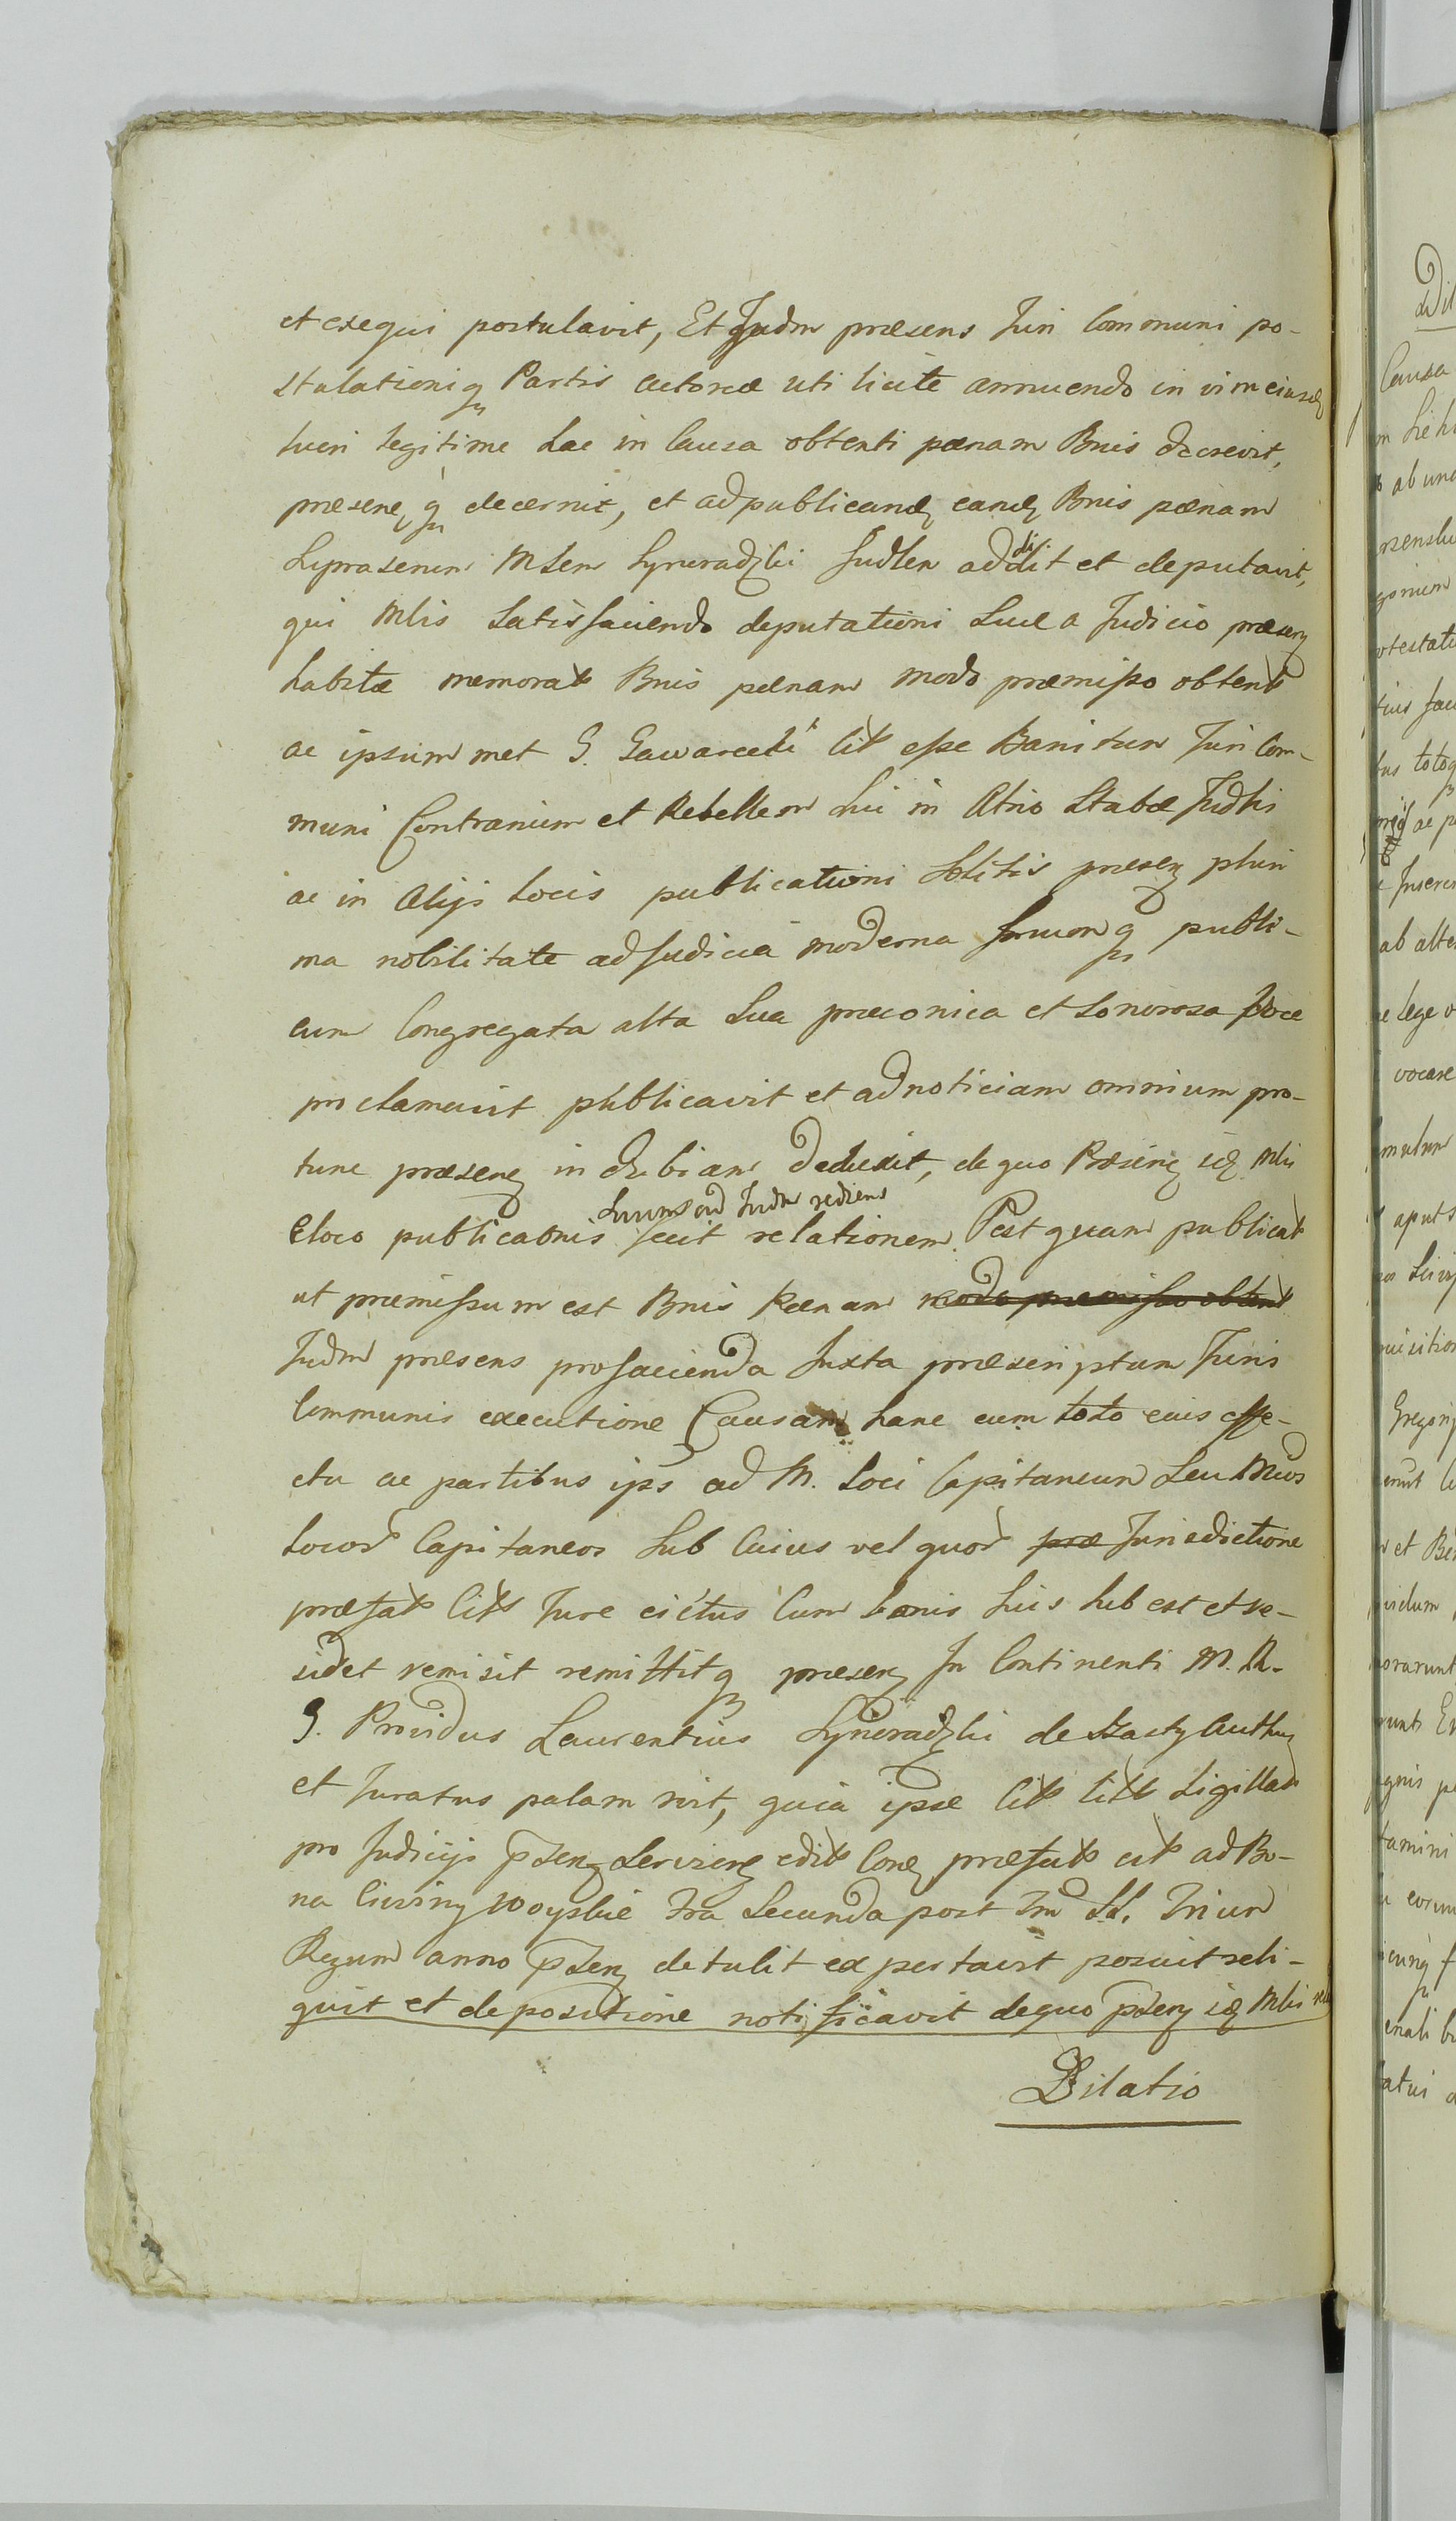 et exequi postulavit, Et Judm præsens Juri Communi po-
stulationiq Partis actoreæ uti licite annuendo in vim eiusd
sueri legitime hac in Causa obtenti pænam Bnis decrevit,
præsenq decernit, et ad publicand eand Bnis pænam
Suprasenen Mlem Syneradzki Judlem addidit et deputavit,
qui Mlis Satisfaciendo deputationi Suæ a Judicio præsen
habitæ memorat Bnis pænam modo præmisso obtent
ac ipsum met G. Gawarecki Cit esse Banitum Juri Com-
muni Contrarium et Rebellem hic in Atrio Stabæ Judlis
ac in Alijs Locis publicationi Solitis præsen pluri
ma nobilitate ad Judicia moderna forumq publi-
cum Congregata alta Sua præconica et Sonorosa voce
proclamavit publicavit et ad noticiam omnium pro-
tunc præsen in dubiam deduxit, de quo Præsens id Mlis
Suum ad Judm rediens
eloco publicaonis fecit relationem. Post quam publicat
ut præmissum est Bnis Pænam modo præmisso obtent
Judm præsens pro facienda Juxta præscriptum Juris
Communis executione Causam hanc cum toto eius effe-
ctu ac partibus ips ad M. Loci Capitaneum Seu Mcos
Locor Capitaneos Sub Cuius vel quor præ Jurisdictione
præfat Cit Jure victus Cum bonis suis subest et re-
sidet remisit remittitq præsen In Continenti M. R.
G. Providus Laurentius Syneradzki de Szacfy Authen
et Juratus palam rvit, quia ipse Cit litt Sigillat
pro Judicijs psen Servien edit Con præfat cit ad Bo-
na Ciuriny Woyskie fra Secunda post fm SS. Trium
Regum anno psen detulit ex pertavit posuit reli-
quit et depositione notificavit de quo psens id Mlis
Dilatio